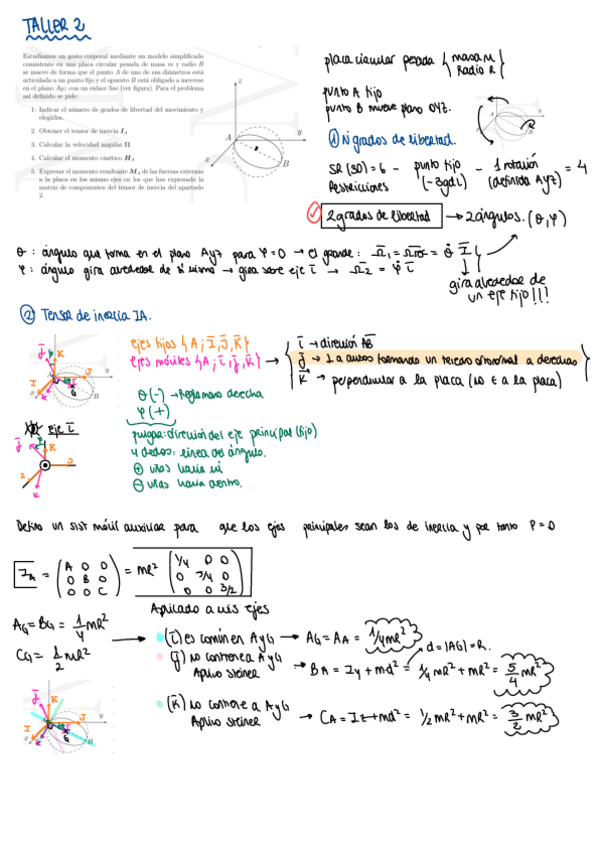 TALLER 2
Estudiamos un gesto corporal mediante un modelo simplificado
consistente en una placa circular pesada de masa m y radio R
se mueve de forma que el punto A de uno de sus diámetros está
articulada a un punto fijo y el opuesto B está obligado a moverse
en el plano Ayz con un enlace liso (ver figura). Para el problema
así definido se pide:
1. Indicar el número de grados de libertad del movimiento y
elegirlos.
2. Obtener el tensor de inercia I_A
3. Calcular la velocidad angular Ω
4. Calcular el momento cinético H_A
5. Expresar el momento resultante M_A de las fuerzas externas
a la placa en los mismo ejes en los que has expresado la
matriz de componentes del tensor de inercia del apartado
2.
z
A
y
x
B
placa circular pesada { masa M
Radio R
punto A fijo
punto B mueve plano OYZ.
① N grados de libertad.
SR (3D) = 6 - punto fijo - 1 rotación = 4
Restricciones (-3gdl) (definida Ayz)
2 grados de libertad → 2 ángulos. (θ, φ)
θ : ángulo que forma en el plano Ayz para φ=0 → el grande: Ω̄₁ = = θ̇ Ī
φ : ángulo gira alrededor de si mismo → gira sobre eje ī → Ω̄₂ = φ̇ ī
gira alrededor de
un eje fijo!!!
② Tensor de inercia IA.
ejes fijos { A ; Ī, J̄, K̄ }
ejes móviles { A ; ī, j̄, k̄ } →
ī → dirección AB
j̄ → ⊥ a ambos formando un triedro ortonormal a derechas
k̄ → perpendicular a la placa (no ∈ a la placa)
θ (-) → Regla mano derecha
φ (+)
eje ī
pulgar: dirección del eje principal (fijo)
4 dedos: línea del ángulo.
⊕ uñas hacia mí
⊖ uñas hacia dentro.
Defino un sist móvil auxiliar para que los ejes principales sean los de inercia y por tanto P=0
I_A = (A 0 0 / 0 B 0 / 0 0 C) = mR² (1/4 0 0 / 0 5/4 0 / 0 0 3/2)
Aplicado a mis ejes
A_G = B_G = 1/4 mR²
C_G = 1/2 mR²
(ī) es común en A y G → A_G = A_A = 1/4 mR²
d = |AG| = R.
(j̄) no contiene a A y G → B_A = I_y + md² = 1/4 mR² + mR² = 5/4 mR²
Aplico steiner
(k̄) no contiene a A y G
Aplico steiner → C_A = I_z + md² = 1/2 mR² + mR² = 3/2 mR²